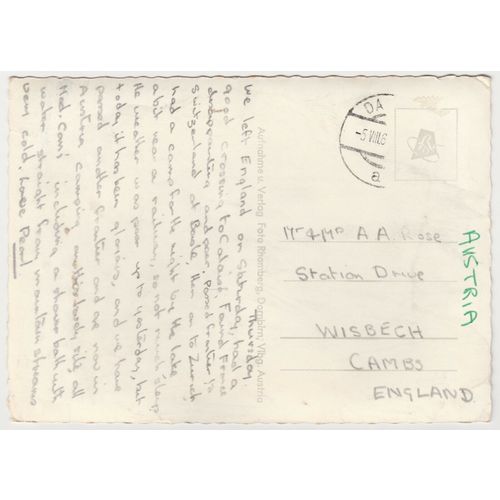 Thursday.
We left England on Saturday, had a
good crossing to Calais. Found France
disappointing and poor. Passed frontier to
Switzerland at Basle, then on to Zurich
had a camp for the night by the lake
a bit near a railway, so not much sleep
The weather was poor up to yesterday, but
today it has been glorious, and we have
passed another frontier and are now in
Austria camping on the sandy site, all
Mod. Cons including a shower bath with
water straight from mountain streams
very cold. Love Pearl
Aufnahme u. Verlag Foto Rhomberg, Dornbirn, Vlbg. Austria
DA
-5.VIII.6
a
Mr & Mrs A.A. Rose
Station Drive
WISBECH
CAMBS
ENGLAND
AUSTRIA